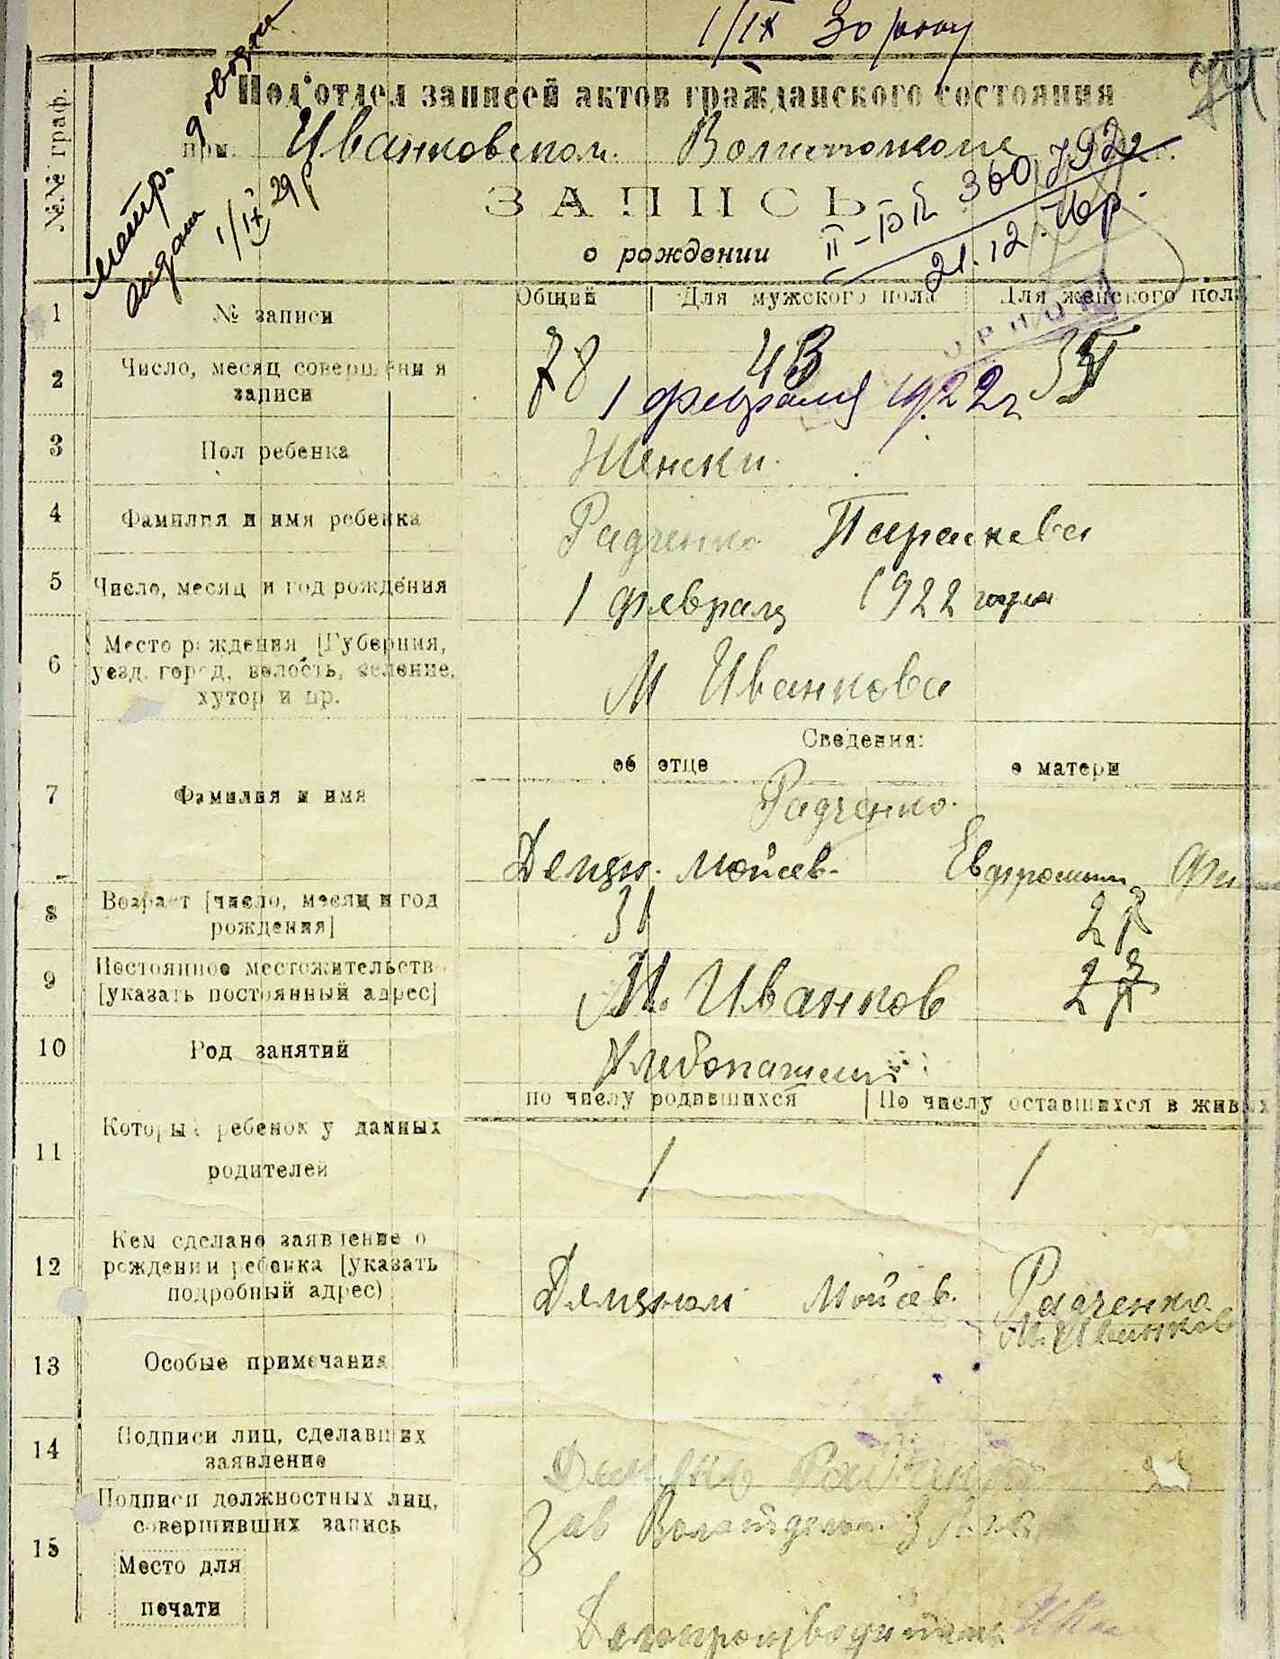 1/IX 30 року
Под'отдел записей актов гражданского состояния
при. Иванковском. Волисполкоме
ЗАПИСЬ
о рождении
№№ граф.
метр.
видана
1/IX 29 р
21.12.
Общий Для мужского пола Для женского пола
1 № записи 78 43 35
2 Число, месяц совершения
записи 1 февраля 1922 г
3 Пол ребенка Женски.
4 Фамилия и имя ребенка Радченко Параскева
5 Число, месяц и год рождения 1 февраля 1922 года
6 Место рождения [Губерния,
уезд, город, волость, селение,
хутор и пр. М Иванкова
Сведения:
об отце о матери
7 Фамилия и имя Радченко.
Демян. Мойсев. Евфросиния
8 Возраст [число, месяц и год
рождения] 31
9 Постоянное местожительств
[указать постоянный адрес] М. Иванков
10 Род занятий Хлибопашец
по числу родившихся По числу оставшихся в живых
11 Который ребенок у данных
родителей 1 1
12 Кем сделано заявление о
рождении ребенка [указать
подробный адрес) Демяном Мойсев. Радченко
М. Иванков
13 Особые примечания
14 Подписи лиц, сделавших
заявление
15 Подписи должностных лиц,
совершивших запись Зав
Место для
печати
Делопроизводитель